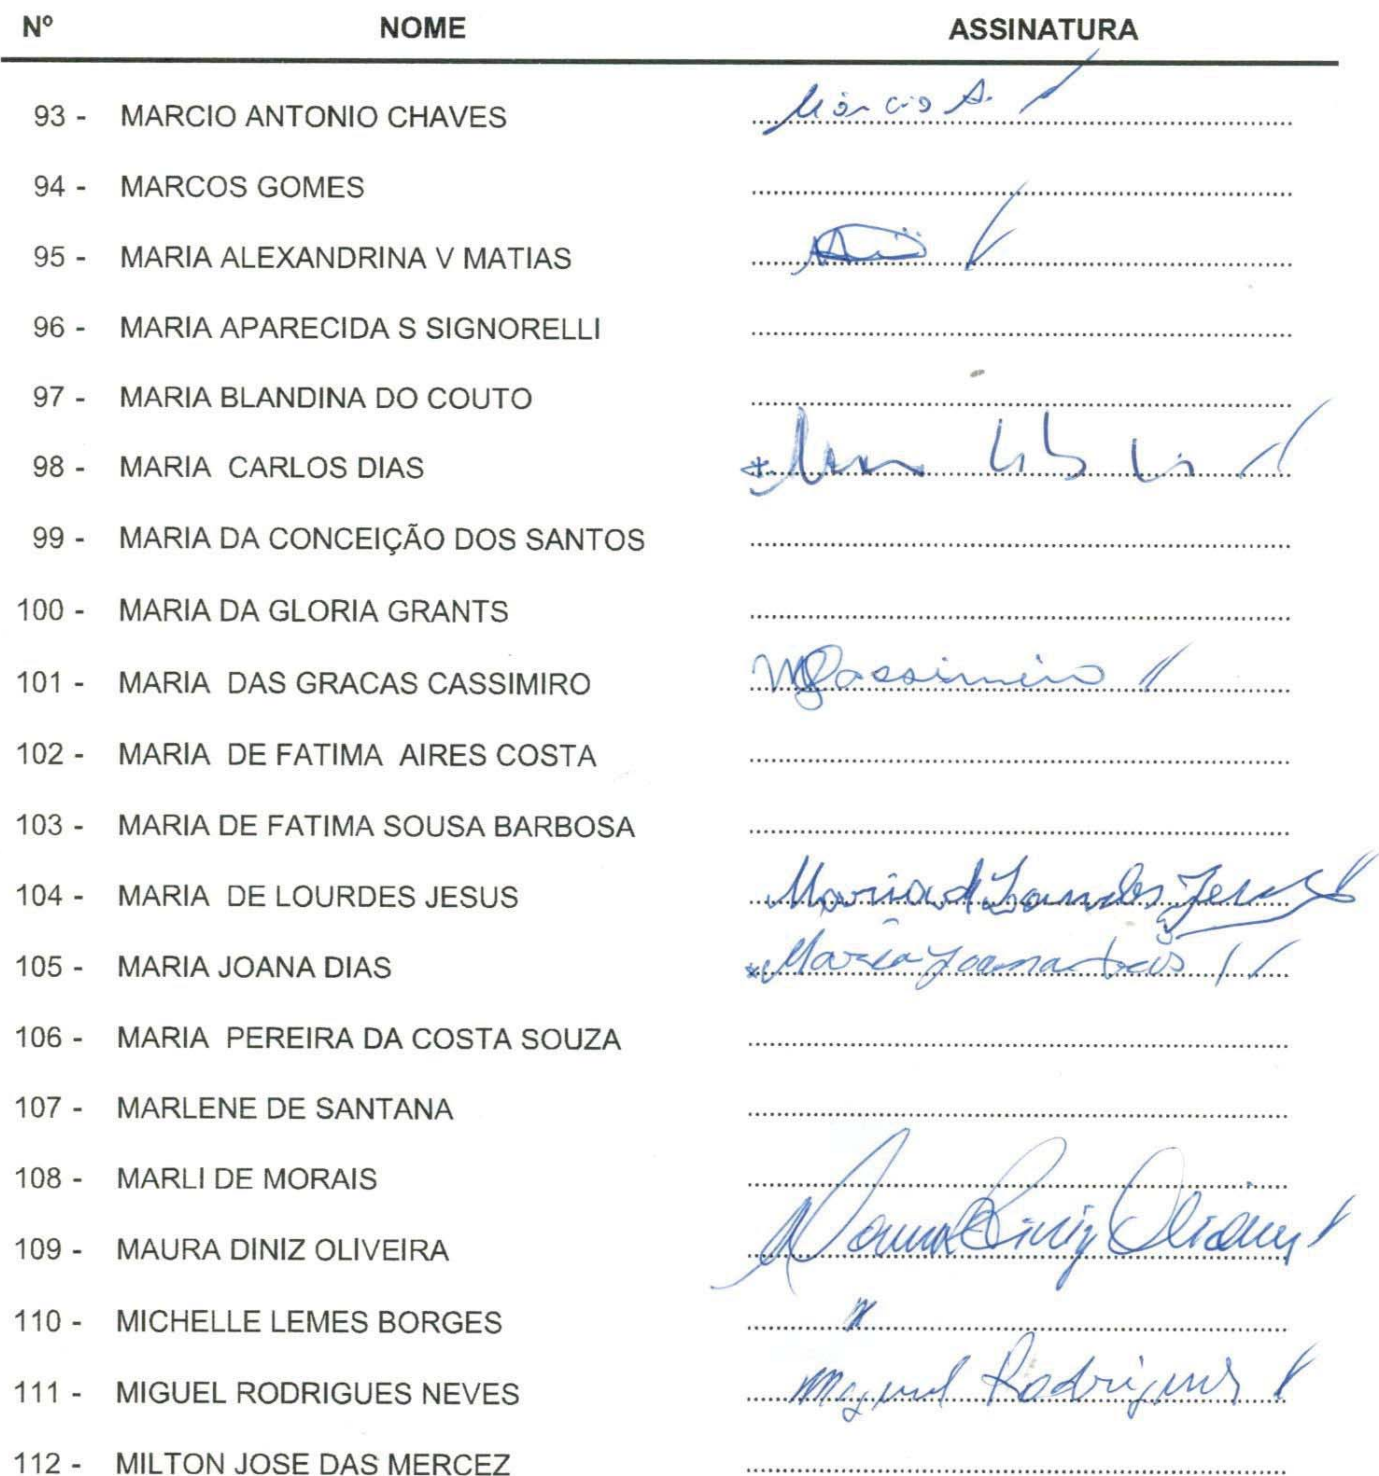 Nº NOME ASSINATURA
93 - MARCIO ANTONIO CHAVES Márcio A.
94 - MARCOS GOMES
95 - MARIA ALEXANDRINA V MATIAS
96 - MARIA APARECIDA S SIGNORELLI
97 - MARIA BLANDINA DO COUTO
98 - MARIA CARLOS DIAS
99 - MARIA DA CONCEIÇÃO DOS SANTOS
100 - MARIA DA GLORIA GRANTS
101 - MARIA DAS GRACAS CASSIMIRO MGCassimiro
102 - MARIA DE FATIMA AIRES COSTA
103 - MARIA DE FATIMA SOUSA BARBOSA
104 - MARIA DE LOURDES JESUS Maria d Lourdes Jesus
105 - MARIA JOANA DIAS Maria Joana Dias
106 - MARIA PEREIRA DA COSTA SOUZA
107 - MARLENE DE SANTANA
108 - MARLI DE MORAIS
109 - MAURA DINIZ OLIVEIRA Maura Diniz Oliveira
110 - MICHELLE LEMES BORGES
111 - MIGUEL RODRIGUES NEVES Miguel Rodrigues
112 - MILTON JOSE DAS MERCEZ